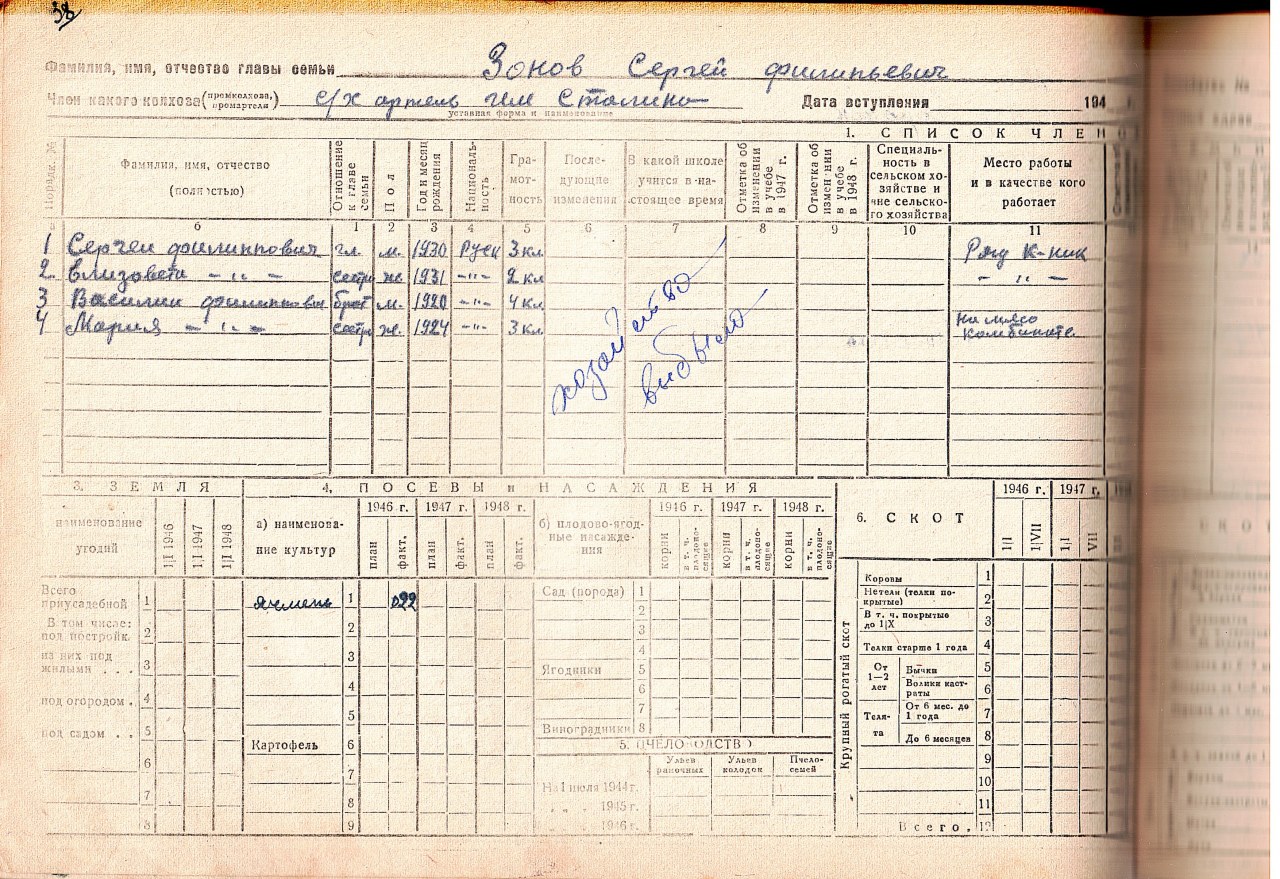 38
Фамилия, имя, отчество главы семьи Зонов Сергей Филипьевич
Член какого колхоза (промколхоза, промартели) с/х артель им Сталина Дата вступления 194
уставная форма и наименование
1. СПИСОК ЧЛЕНО
Порядк. №
Фамилия, имя, отчество (полностью)
Отношение к главе семьи
Пол
Год и месяц рождения
Националь-ность
Гра-мот-ность
После-дующие изменения
В какой школе учится в на-стоящее время
Отметка об изменении в учебе в 1947 г.
Отметка об измен-нии в учебе в 1948 г.
Специаль-ность в сельском хо-зяйстве и вне сельско-го хозяйства
Место работы и в качестве кого работает
а б 1 2 3 4 5 6 7 8 9 10 11
1 Сергей Филиппович гл. м. 1930 Руск 3 кл Ряд к-ник
2. Елизовета - " - сестра ж. 1931 -"- 2 кл - " -
3 Василий Филиппович брат м. 1920 -"- 4 кл
4 Мария - " - сестра ж. 1924 -"- 3 кл. На мясо комбинате.
хозяйство
выбыло
3. ЗЕМЛЯ
наименование угодий
1|I 1946
1|I 1947
1|I 1948
Всего приусадебной 1
В том числе: под постройк. 2
из них под жилыми . . . 3
под огородом . 4
под садом . . 5
6
7
8
4. ПОСЕВЫ и НАСАЖДЕНИЯ
а) наименова-ние культур
1946 г. 1947 г. 1948 г.
план факт. план факт. план факт.
ячмень 1 022
2
3
4
5
Картофель 6
7
8
9
б) плодово-ягод-ные насажде-ния
1946 г. 1947 г. 1948 г.
корни в т. ч. плодоно-сящие корни в т. ч. плодоно-сящие корни в т. ч. плодоно-сящие
Сад (порода) 1
2
3
4
Ягодники 5
6
7
Виноградники 8
5. ПЧЕЛОВОДСТВО
Ульев рамочных Ульев колодок Пчело-семей
На 1 июля 1944 г.
" " " 1945 г.
" " " 1946 г.
6. СКОТ
1946 г. 1947 г.
1|I 1|VII 1|I VII
Крупный рогатый скот
Коровы 1
Нетели (телки по-крытые) 2
В т. ч. покрытые до 1|X 3
Телки старше 1 года 4
От 1—2 лет
Бычки 5
Волики каст-раты 6
Теля-та
От 6 мес. до 1 года 7
До 6 месяцев 8
9
10
11
Всего. 12